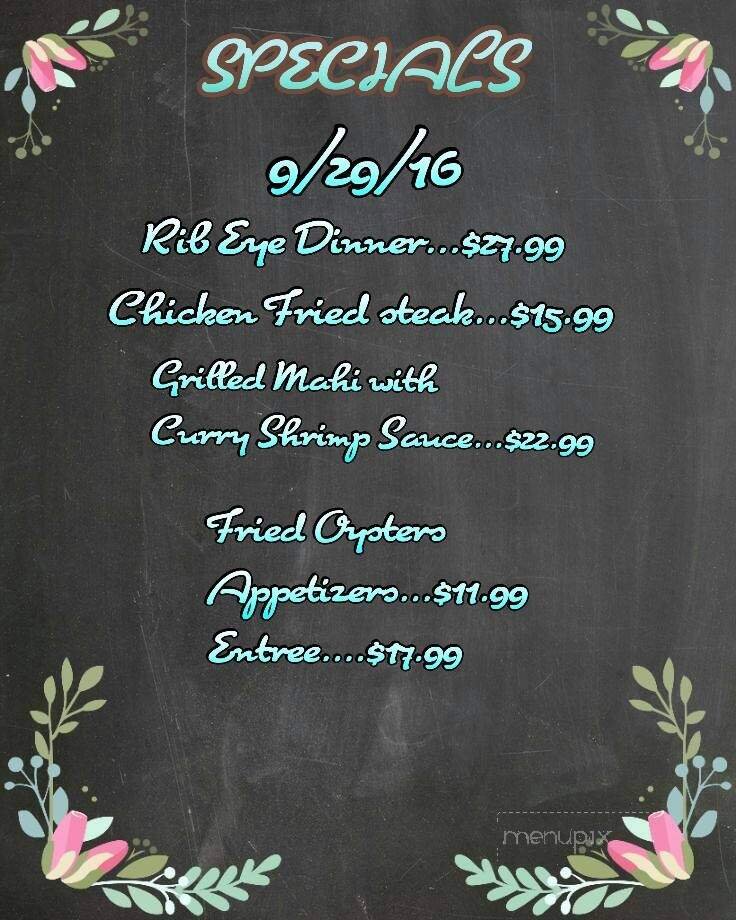 SPECIALS
9/29/16
Rib Eye Dinner...$27.99
Chicken Fried steak...$15.99
Grilled Mahi with
Curry Shrimp Sauce...$22.99
Fried Oysters
Appetizers...$11.99
Entree....$17.99
menupix